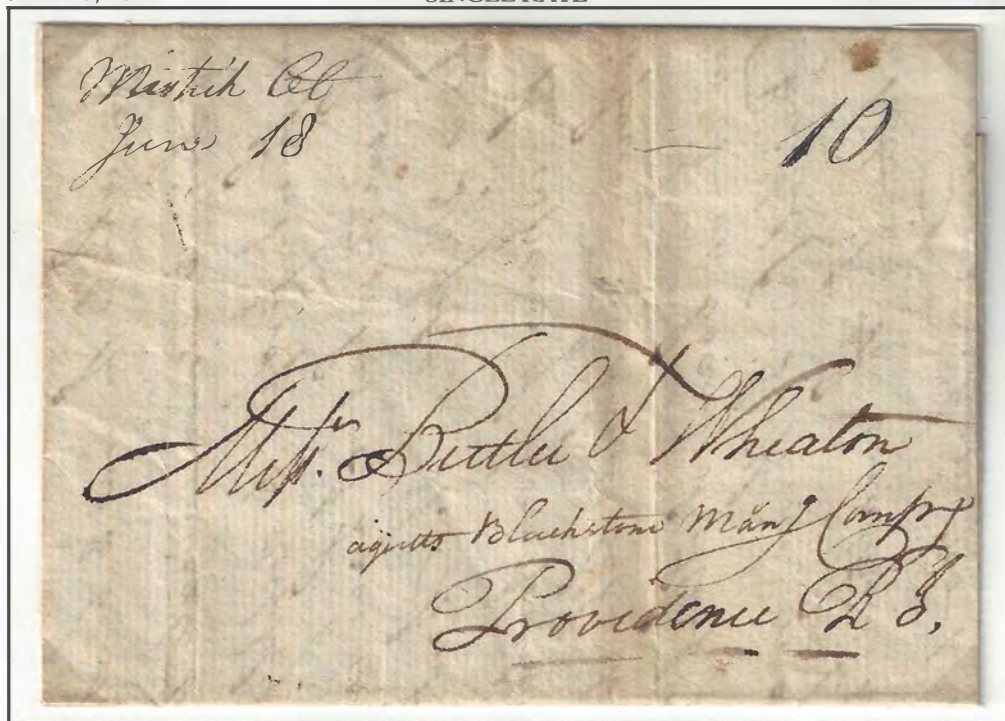 SINGLE RATE
Mistick Ct
June 18
10
Messrs. Butler & Wheaton
agents Blackstone Mang Compy
Providence R I.